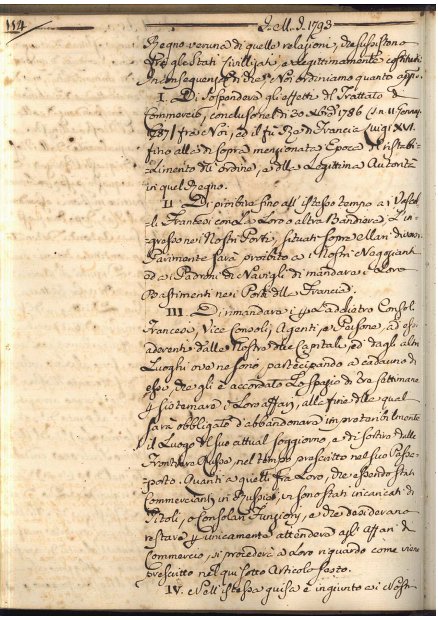 114
1793
Regno veruna di quelle relazioni, che sussistono
fra gle Stati Civillizati, e legittimamente costituiti
In conseguenza di che Noi ordiniamo quanto appo.
I. Di sospendere gli effetti del Trattato di
Commercio, concluso nel di 30 Xbre 1786 11 Gennajo
1787/ fra Noi, ed il fù Re di Francia Luigi XVI.
fino alla di sopra menzionata Epoca del ristabi-
-limento dell'ordine, e della Legittima Autorità
in quel Regno.
II Di proibire fino all'istesso tempo a i Vascel.
li Francesi con la Loro o altra Bandiera L'in-
gresso nei Nostri Porti, situati sopra Mari diversi.
Parimente sarà proibito a i Nostri Negozianti
ed a Padroni di Navigli di mandare i Loro
Bastimenti nei Porti della Francia.
III. Di rimandare i Consoli
Francesi, Vice Consoli, Agenti, e Persone, ad essi
aderenti dalle Nostre due Capitali, ed dagli altri
Luoghi ove ne sono, partecipando a cadauno di
essi, che gli è accordato Lo spazio di tre settimane
sistemare i Loro affari, alla fine delle quali
sarà obbligato d'abbandonare
il Luogo del suo attual soggiorno, e di sortire dalle
Frontiere Russe, nel tempo prescritto nel suo Passa-
-porto. Quanti a quelli fra Loro, che essendo stati
Commercianti in Russia, vi sono stati incaricati di
Titoli, o Consolari Funzioni, e che desiderano
restare unicamente attendere agli affari di
Commercio, si procederà a Loro riguardo come viene
prescritto nel qui sotto Articolo sesto.
IV. Nell'istessa guisa è ingiunto a i Nostri